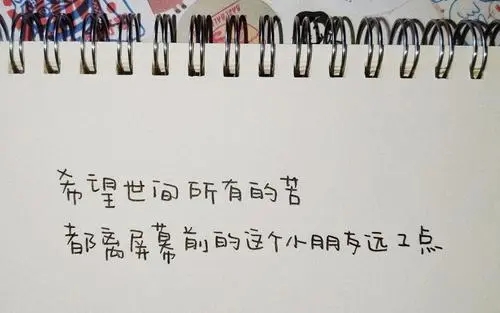 希望世间所有的苦
都离屏幕前的这个小朋友远工点